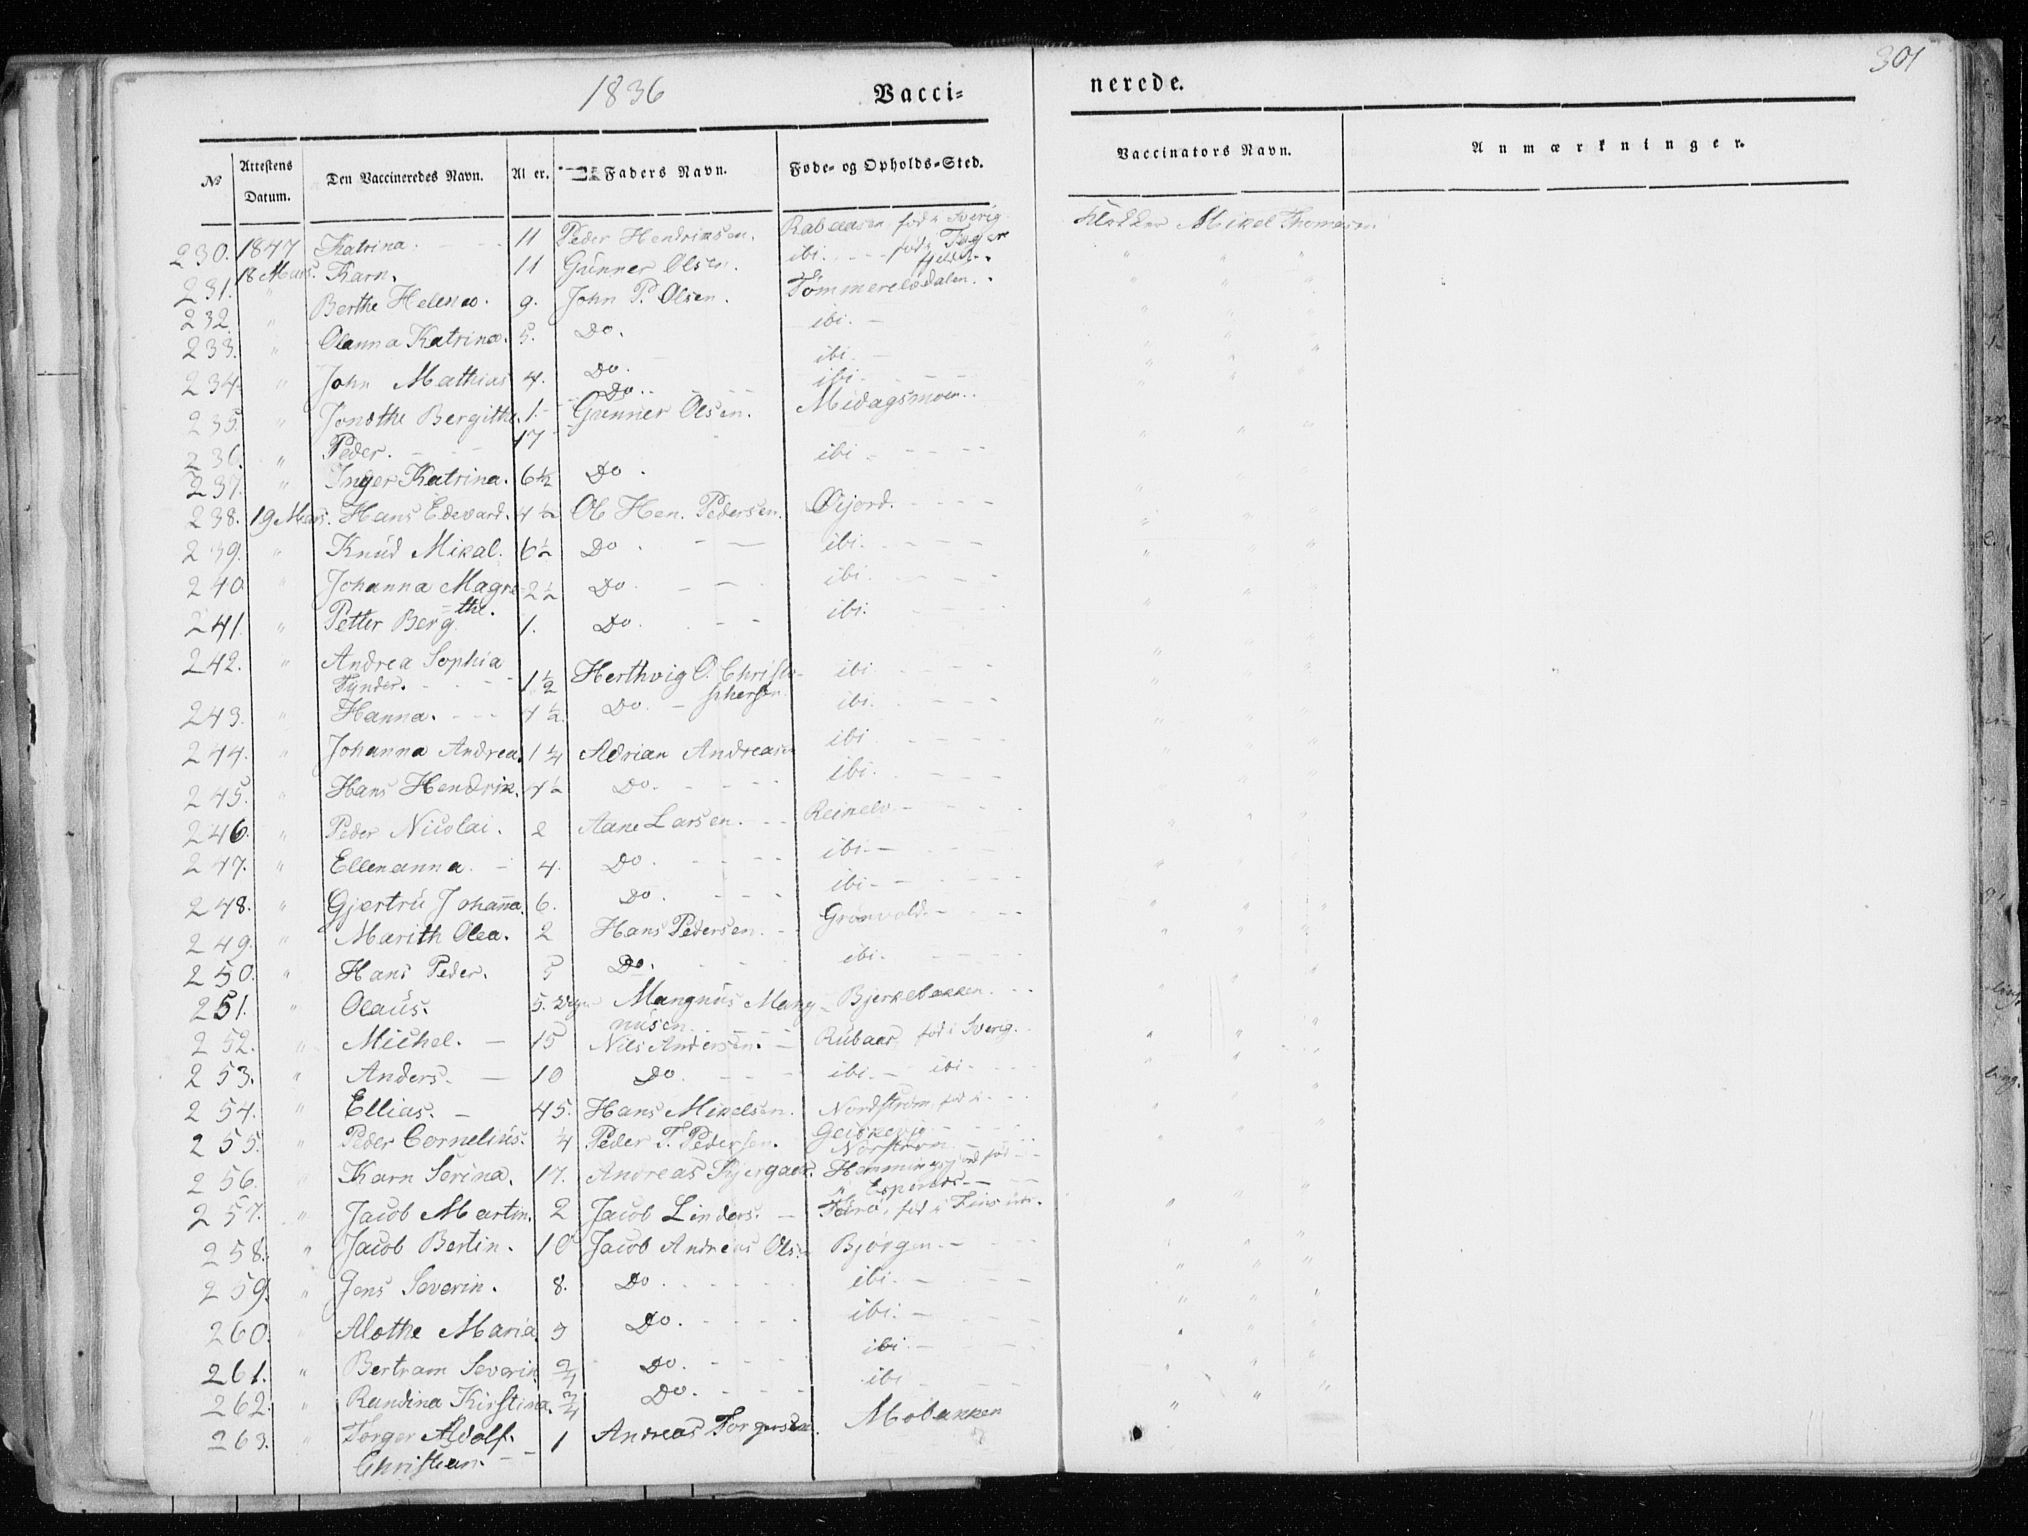 301
1836 Vacci= nerede.
No Attestens Datum. Den Vaccineredes Navn. Al er. Faders Navn. Føde- og Opholds-Sted. Vaccinators Navn. Anmærkninger.
230. 1847 Katrina. 11 Peder Hendriksen. fød i Sverig. Klokker Mikel Thomesen
231. 18 Mars. Karn. 11 Gunner Olsen. ibi. fød i
232. " Berthe Helene. 9. John P. Olsen. Tommerelvdalen.
233. " Olanna Katrina. 5. Do. ibi.
234. " John Mathias 4. Do. ibi.
235. " Jonethe Bergithe. 1. Do. ibi.
236. " Peder. 17 Gunner Olsen. Midagsmoen.
237. " Inger Katrina. 6½ Do. ibi.
238. 19 Mars. Hans Edevard. 4½ Ol Hen. Pedersen. Øijord.
239. " Knud Mikal. 6½ Do. ibi.
240 " Johanna Magre- 2½ Do. ibi.
the.
241. " Petter Berg. 1. Do. ibi.
242. " Andrea Sophia
Tynder. 1½ Herthvig O. Christo- ibi.
phersen
243. " Hanna. 4½. Do. ibi.
244. " Johanna Andrea. 1¼ Adrian Andreasen ibi
245. " Hans Hendrik. 4½ Do. ibi.
246. " Peder Nicolai. 2 Aane Larsen. Reinelv
247. " Ellenanna. 4. Do. ibi.
248. " Gjertru Johanna. 6. Do. ibi.
249. " Marith Olea. 2 Hans Pedersen. Grønvold.
250. " Hans Peder. 5 Do. ibi.
251. " Olaus. 5. Mangnus Mang- Bjerkebakken.
nusen
252. " Michel. 15 Nils Andersen. fød i Sverig.
253. " Anders. 10 Do ibi. ibi.
254. " Ellias. 45. Hans Mikelsen. Nordstrøm, fød i
255. " Peder Cornelius. ¼ Peder T. Pedersen. Norstrøm
256. " Karn Serina. 17. Andreas Hemmingsjord fød
257. " Jacob Martin. 2 Jacob Linders. fød i
258. " Jacob Bertin. 10 Jacob Andreas Olsen Bjørgen.
259. " Jens Severin. 8. Do. ibi.
260. " Alethe Maria. 5 Do. ibi.
261. " Bertram Severin 2/4 Do. ibi.
262. " Randina Kirstina. ¾ Do. ibi
263. " Torger Adolf. 1 Andreas Torgersen. Mobakken
Christian.